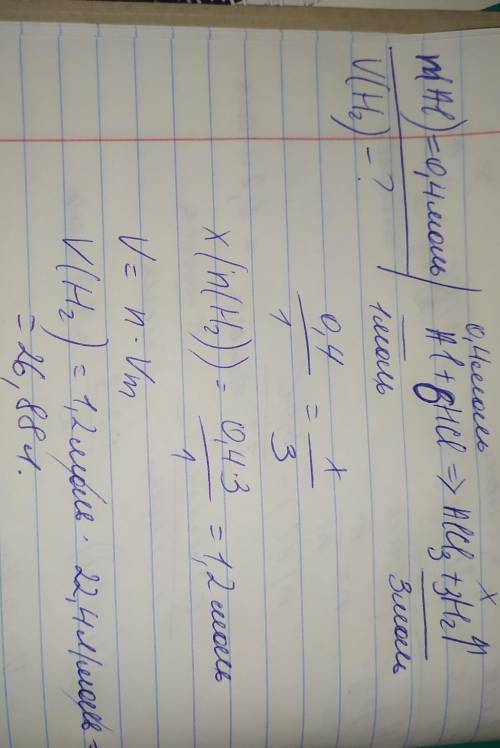 n(Al) = 0,4 моль
V(H₂) - ?
0,4 моль x
Al + 6HCl => AlCl₃ + 3H₂↑
1 моль 3 моль
0,4/1 = x/3
x(n(H₂)) = 0,4·3/1 = 1,2 моль
V = n · Vm
V(H₂) = 1,2 моль · 22,4 л/моль =
= 26,88 л.